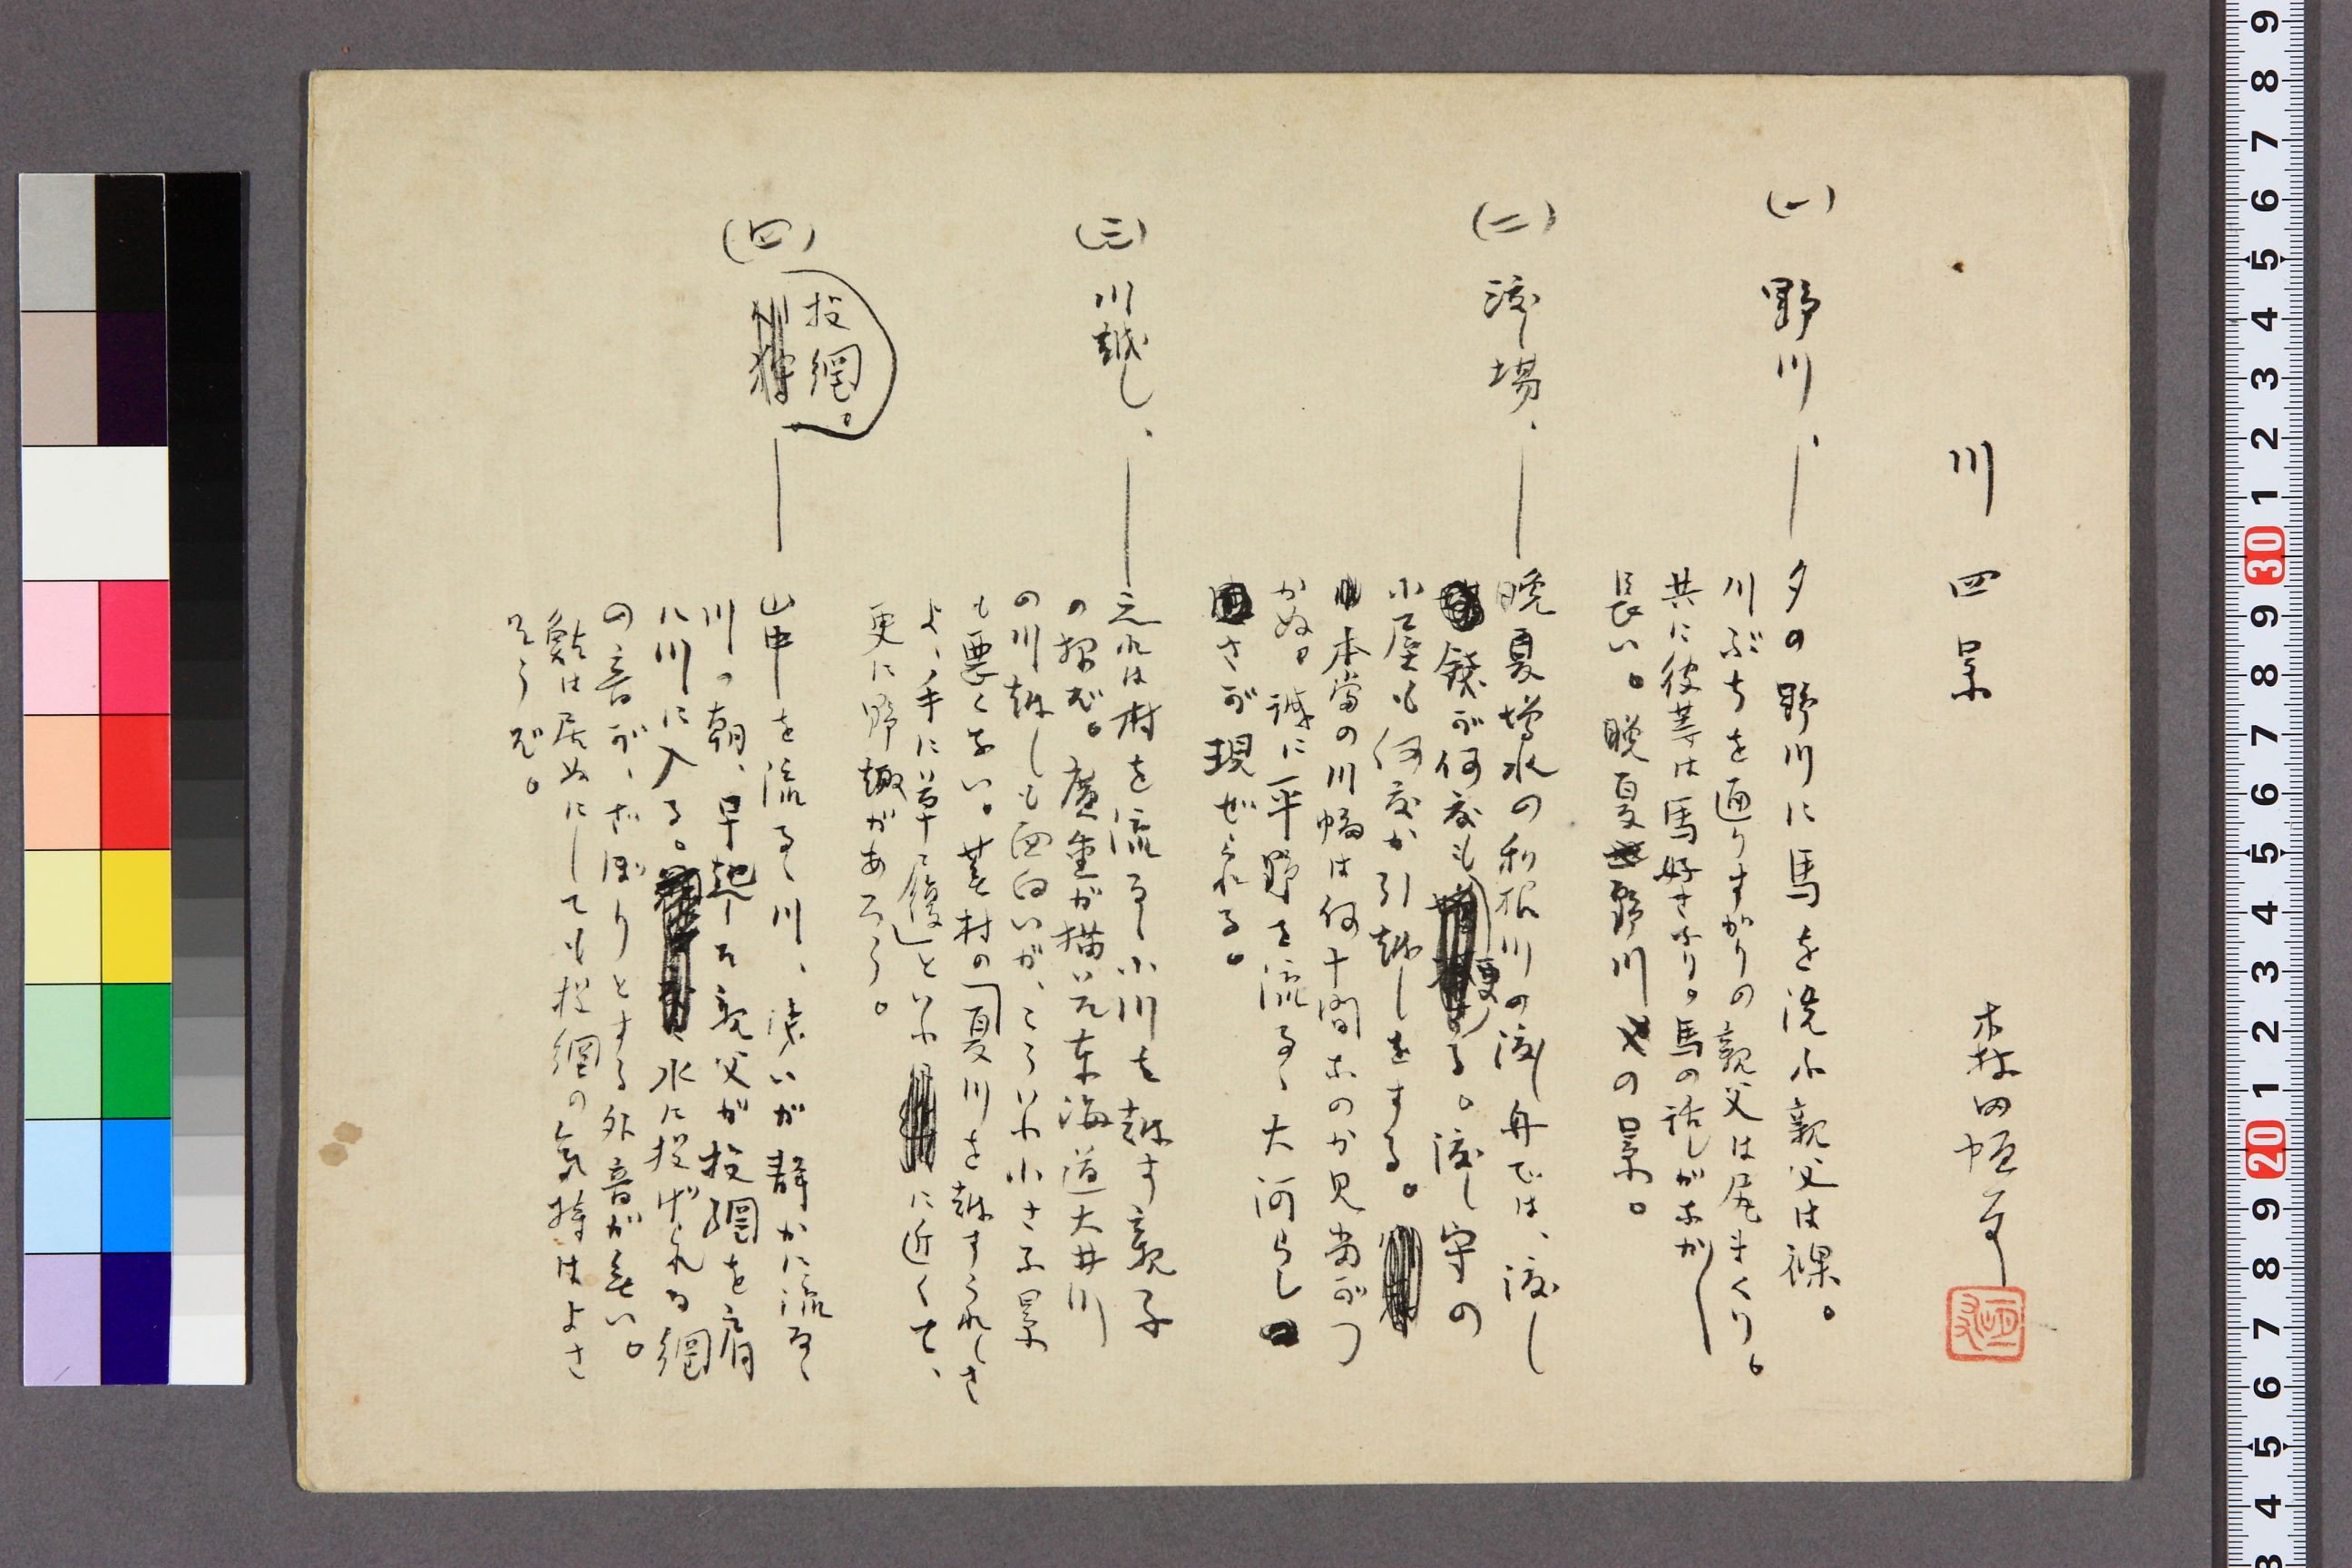 川四景
森田恒友
(一) 野川、―夕の野川に馬を洗ふ親父は裸。
川ぶちを通りすがりの親父は尻まくり。
共に彼等は馬好きなり。馬の話しがなが
長い。晩夏野川の景。
(二) 渡場、―晩夏増水の利根川の渡舟では、渡し
銭が何度も変る。渡し守の
小屋も何度か引越しをする。
本当の川幅は何十間あのか見当がつ
かぬ。誠に平野を流るゝ大河らし
さが現ぜられる。
(三) 川越し、―之れは村を流るゝ小川を越す親子
の揮だ。廣重が描いた東海道大井川
の川越しも面白いが、こういふ小さな景
も悪くない。蕪村の「夏川を越すうれしさ
よ、手に草履」といふに近くて、
更に野趣があろう。
(四) 投網。―山中を流るゝ川、凄いが静かに流るゝ
川の朝、早起した親父が投網を肩
に川に入る。水に投げられる網
の音が、ざぼりとする外音が無い。
鮎は居ぬにしても投網の気持はよさ
そうだ。
9
8
7
6
5
4
3
2
1
30
9
8
7
6
5
4
3
2
1
20
9
8
7
6
5
4
3